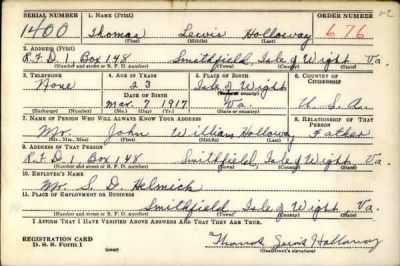 SERIAL NUMBER 1. NAME (Print) ORDER NUMBER
1400 Thomas Lewis Holloway 676
(First) (Middle) (Last)
2. ADDRESS (Print)
R.F.D. 1 Box 148 Smithfield, Isle of Wight, Va.
(Number and street or R. F. D. number) (Town) (County) (State)
3. TELEPHONE 4. AGE IN YEARS 5. PLACE OF BIRTH 6. COUNTRY OF CITIZENSHIP
None 23 Isle of Wight
DATE OF BIRTH (Town or county)
Mar. 7, 1917 Va. U. S. A.
(Exchange) (Number) (Mo.) (Day) (Yr.) (State or country)
7. NAME OF PERSON WHO WILL ALWAYS KNOW YOUR ADDRESS 8. RELATIONSHIP OF THAT PERSON
Mr. John William Holloway Father
(Mr., Mrs., Miss) (First) (Middle) (Last)
9. ADDRESS OF THAT PERSON
R.F.D. 1 Box 148 Smithfield, Isle of Wight Va.
(Number and street or R. F. D. number) (Town) (County) (State)
10. EMPLOYER'S NAME
Mr. S. D. Helmick
11. PLACE OF EMPLOYMENT OR BUSINESS
Smithfield, Isle of Wight, Va.
(Number and street or R. F. D. number) (Town) (County) (State)
I AFFIRM THAT I HAVE VERIFIED ABOVE ANSWERS AND THAT THEY ARE TRUE.
REGISTRATION CARD
D. S. S. FORM 1 Thomas Lewis Holloway
(over) (Registrant's signature)